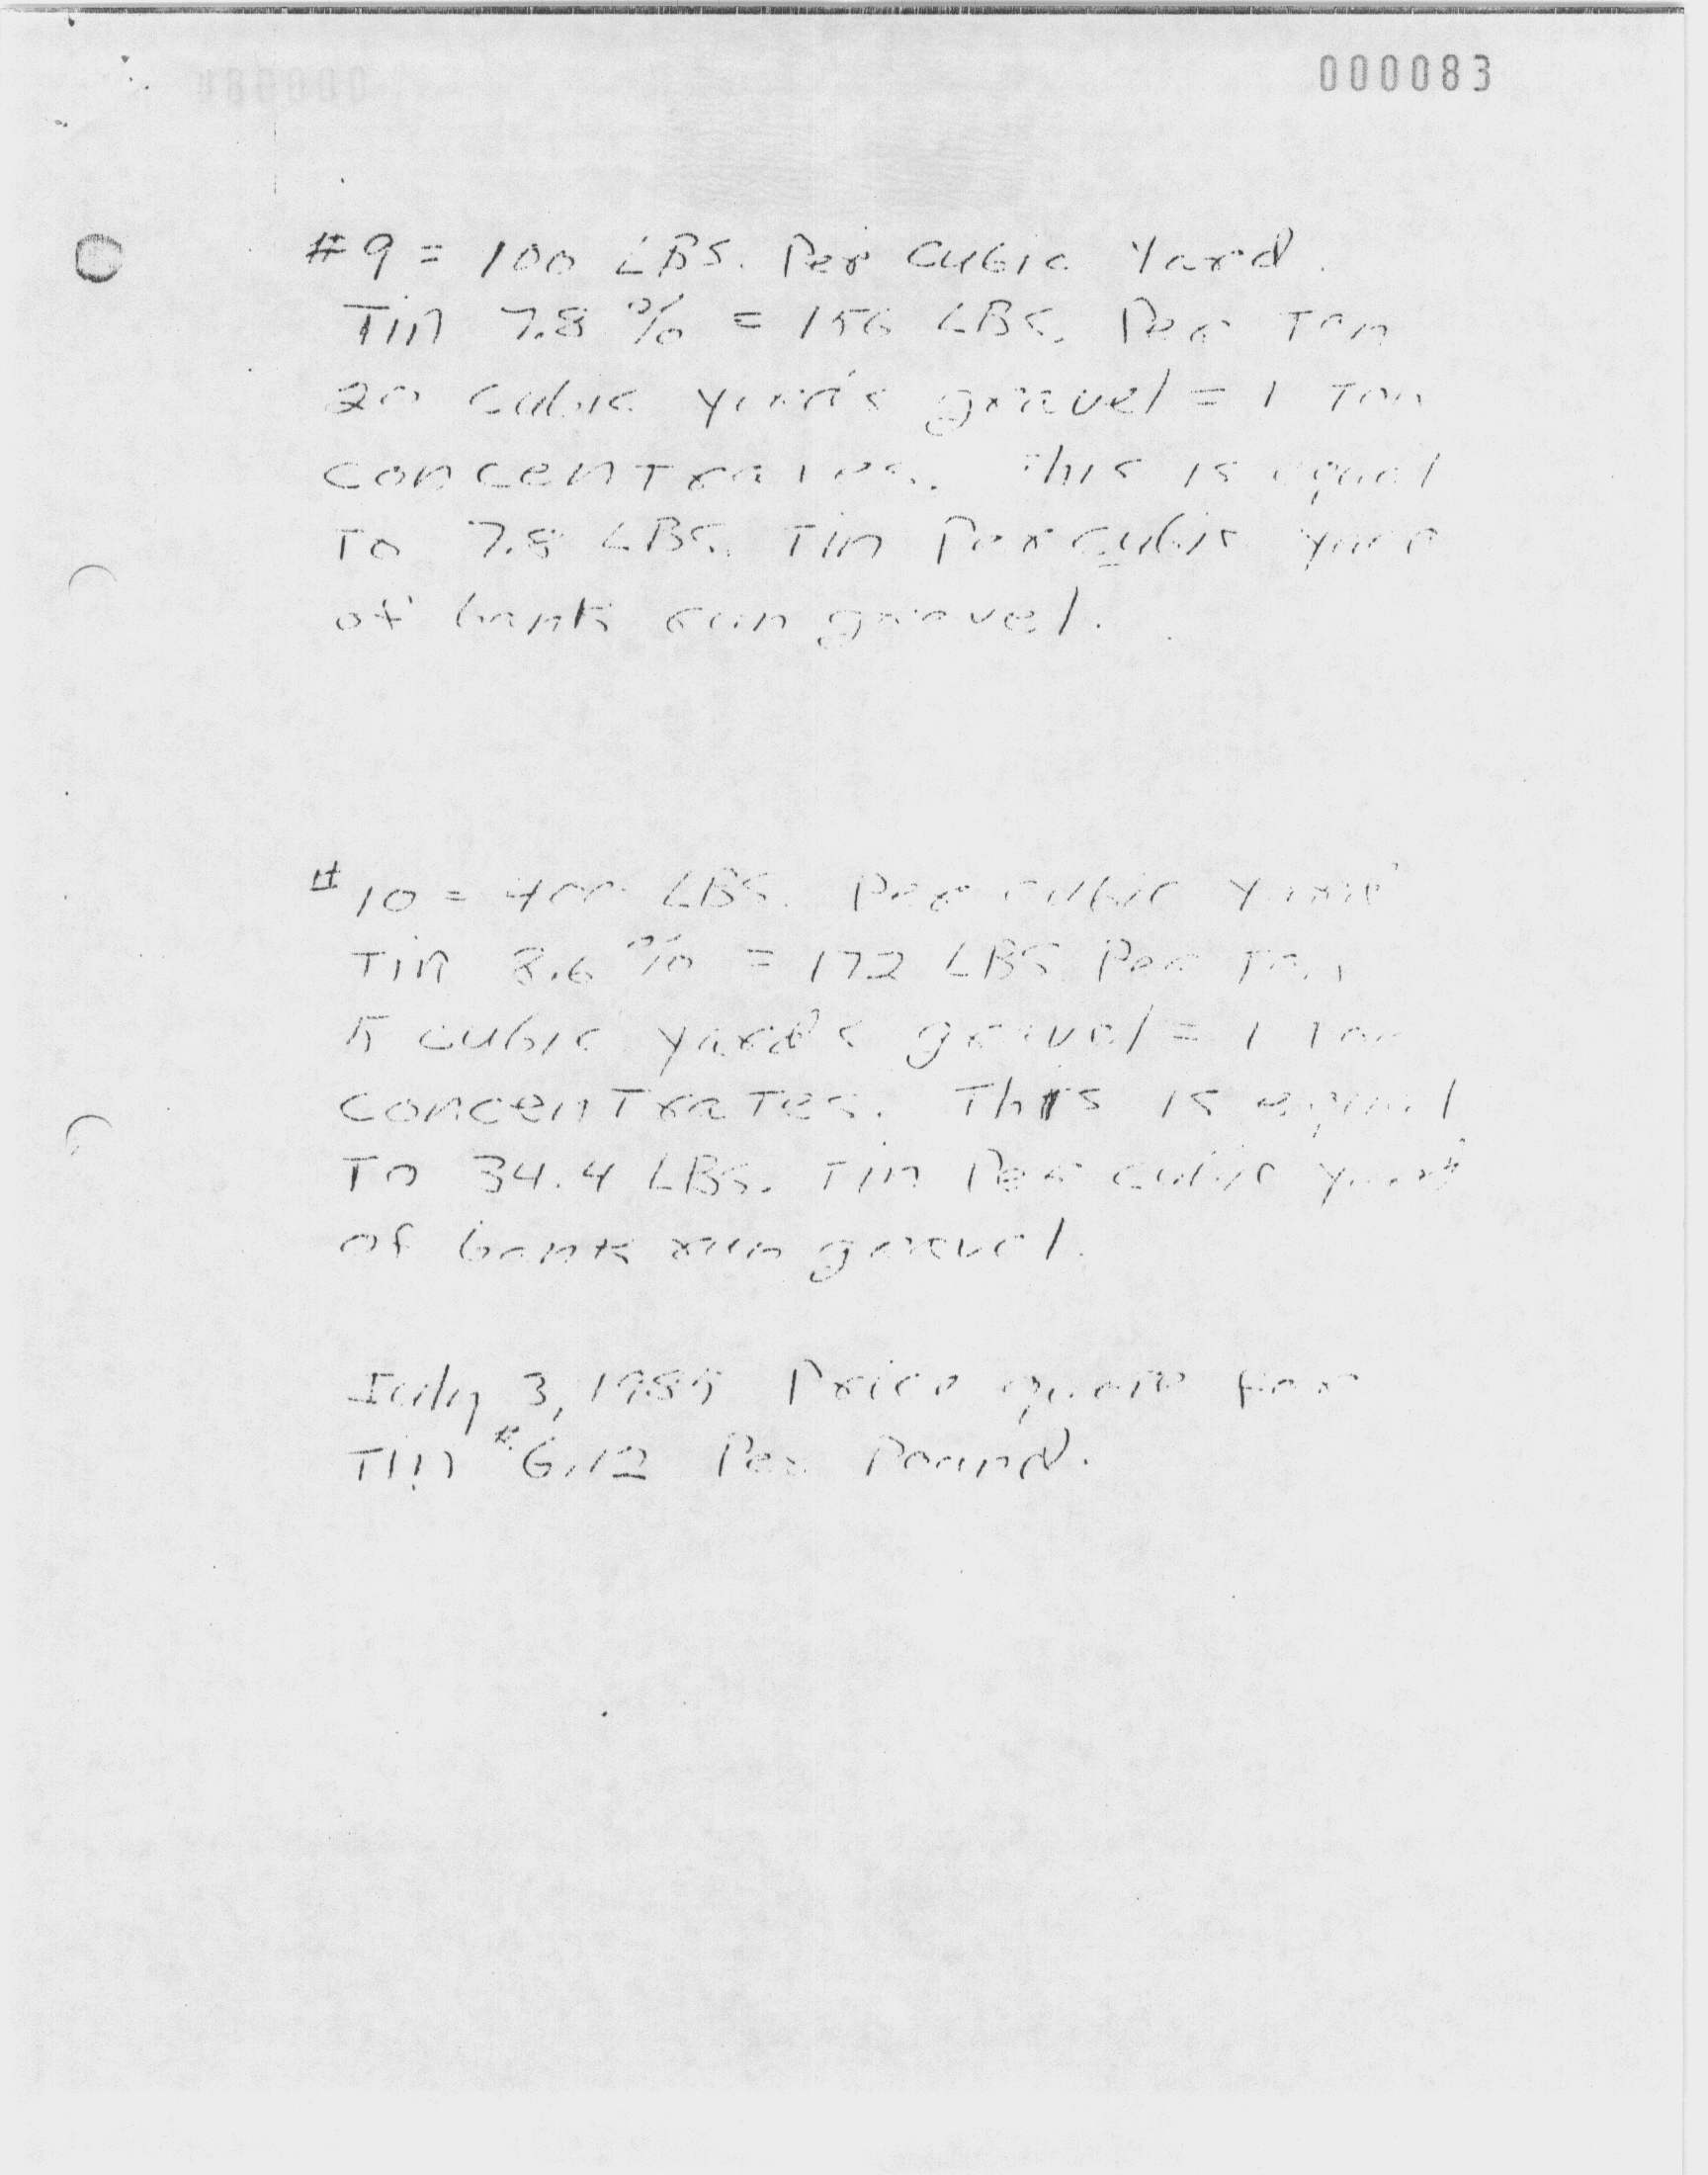 000083
#9 = 100 LBS. Per Cubic Yard.
Tin 7.8 % = 156 LBS. Per Ton
20 cubic yards gravel = 1 Ton
concentrates. This is equal
To 7.8 LBS. Tin Per cubic yard
of bank run gravel.
#10 = 400 LBS. Per cubic Yard
Tin 8.6 % = 172 LBS Per Ton
5 cubic yards gravel = 1 Ton
concentrates. This is equal
To 34.4 LBS. Tin Per cubic yard
of bank run gravel.
July 3, 1985 Price quote for
Tin $6.12 Per Pound.